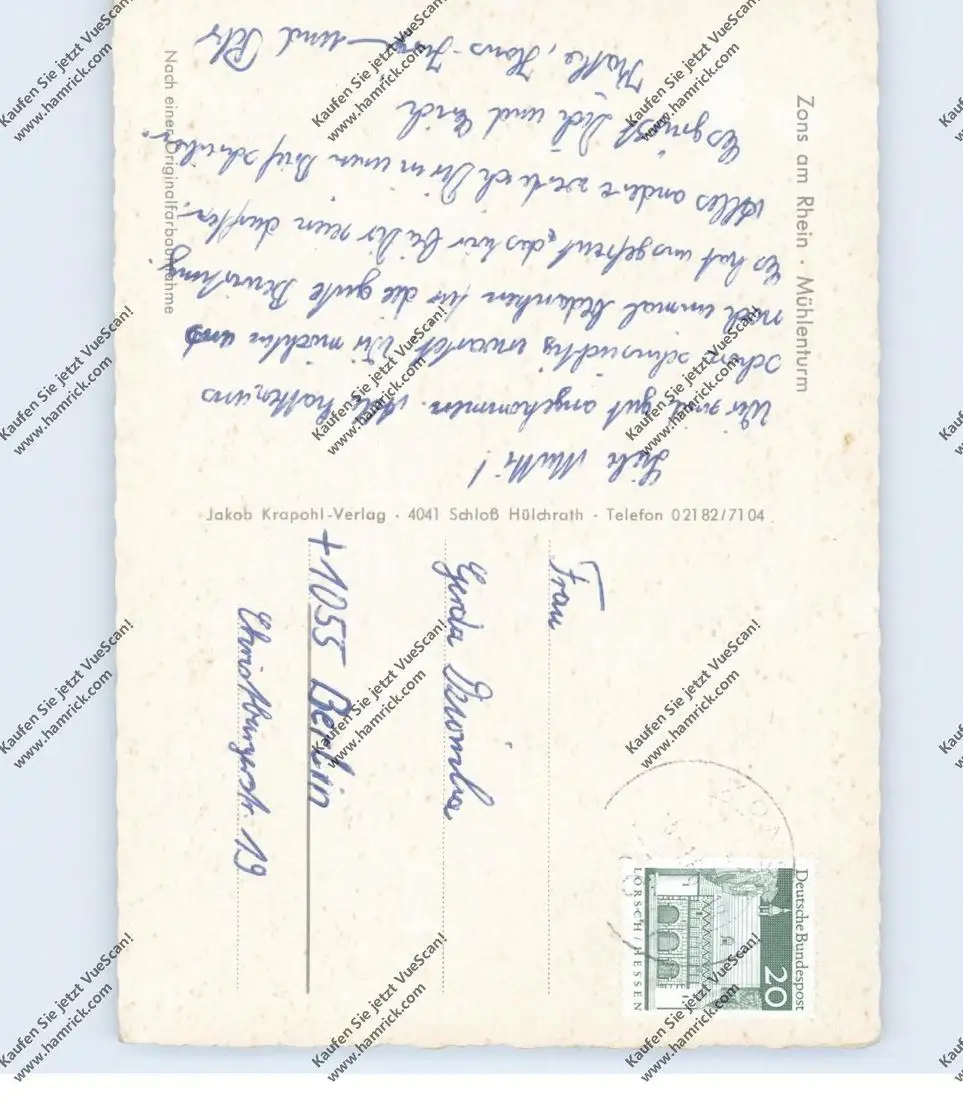 Zons am Rhein · Mühlenturm
Nach einer Originalfarbaufnahme
Liebe Mutti!
Wir sind gut angekommen. Alle hatten uns
schon sehnsüchtig erwartet. Wir möchten uns
noch einmal bedanken für die gute Bewirtung.
Es hat uns gefreut, das wir bei Dir sein durften.
Alles andere werde ich Dir in einen Brief schreiben.
Es grüßt Dich und Erich
Käthe, Hans- und
Jakob Krapohl-Verlag · 4041 Schloß Hülchrath · Telefon 02182/7104
Frau
Gerda
+1055 Berlin
Christburgerstr. 19
Deutsche Bundespost
20
LORSCH/HESSEN
ZONS
Kaufen Sie jetzt VueScan!
www.hamrick.com